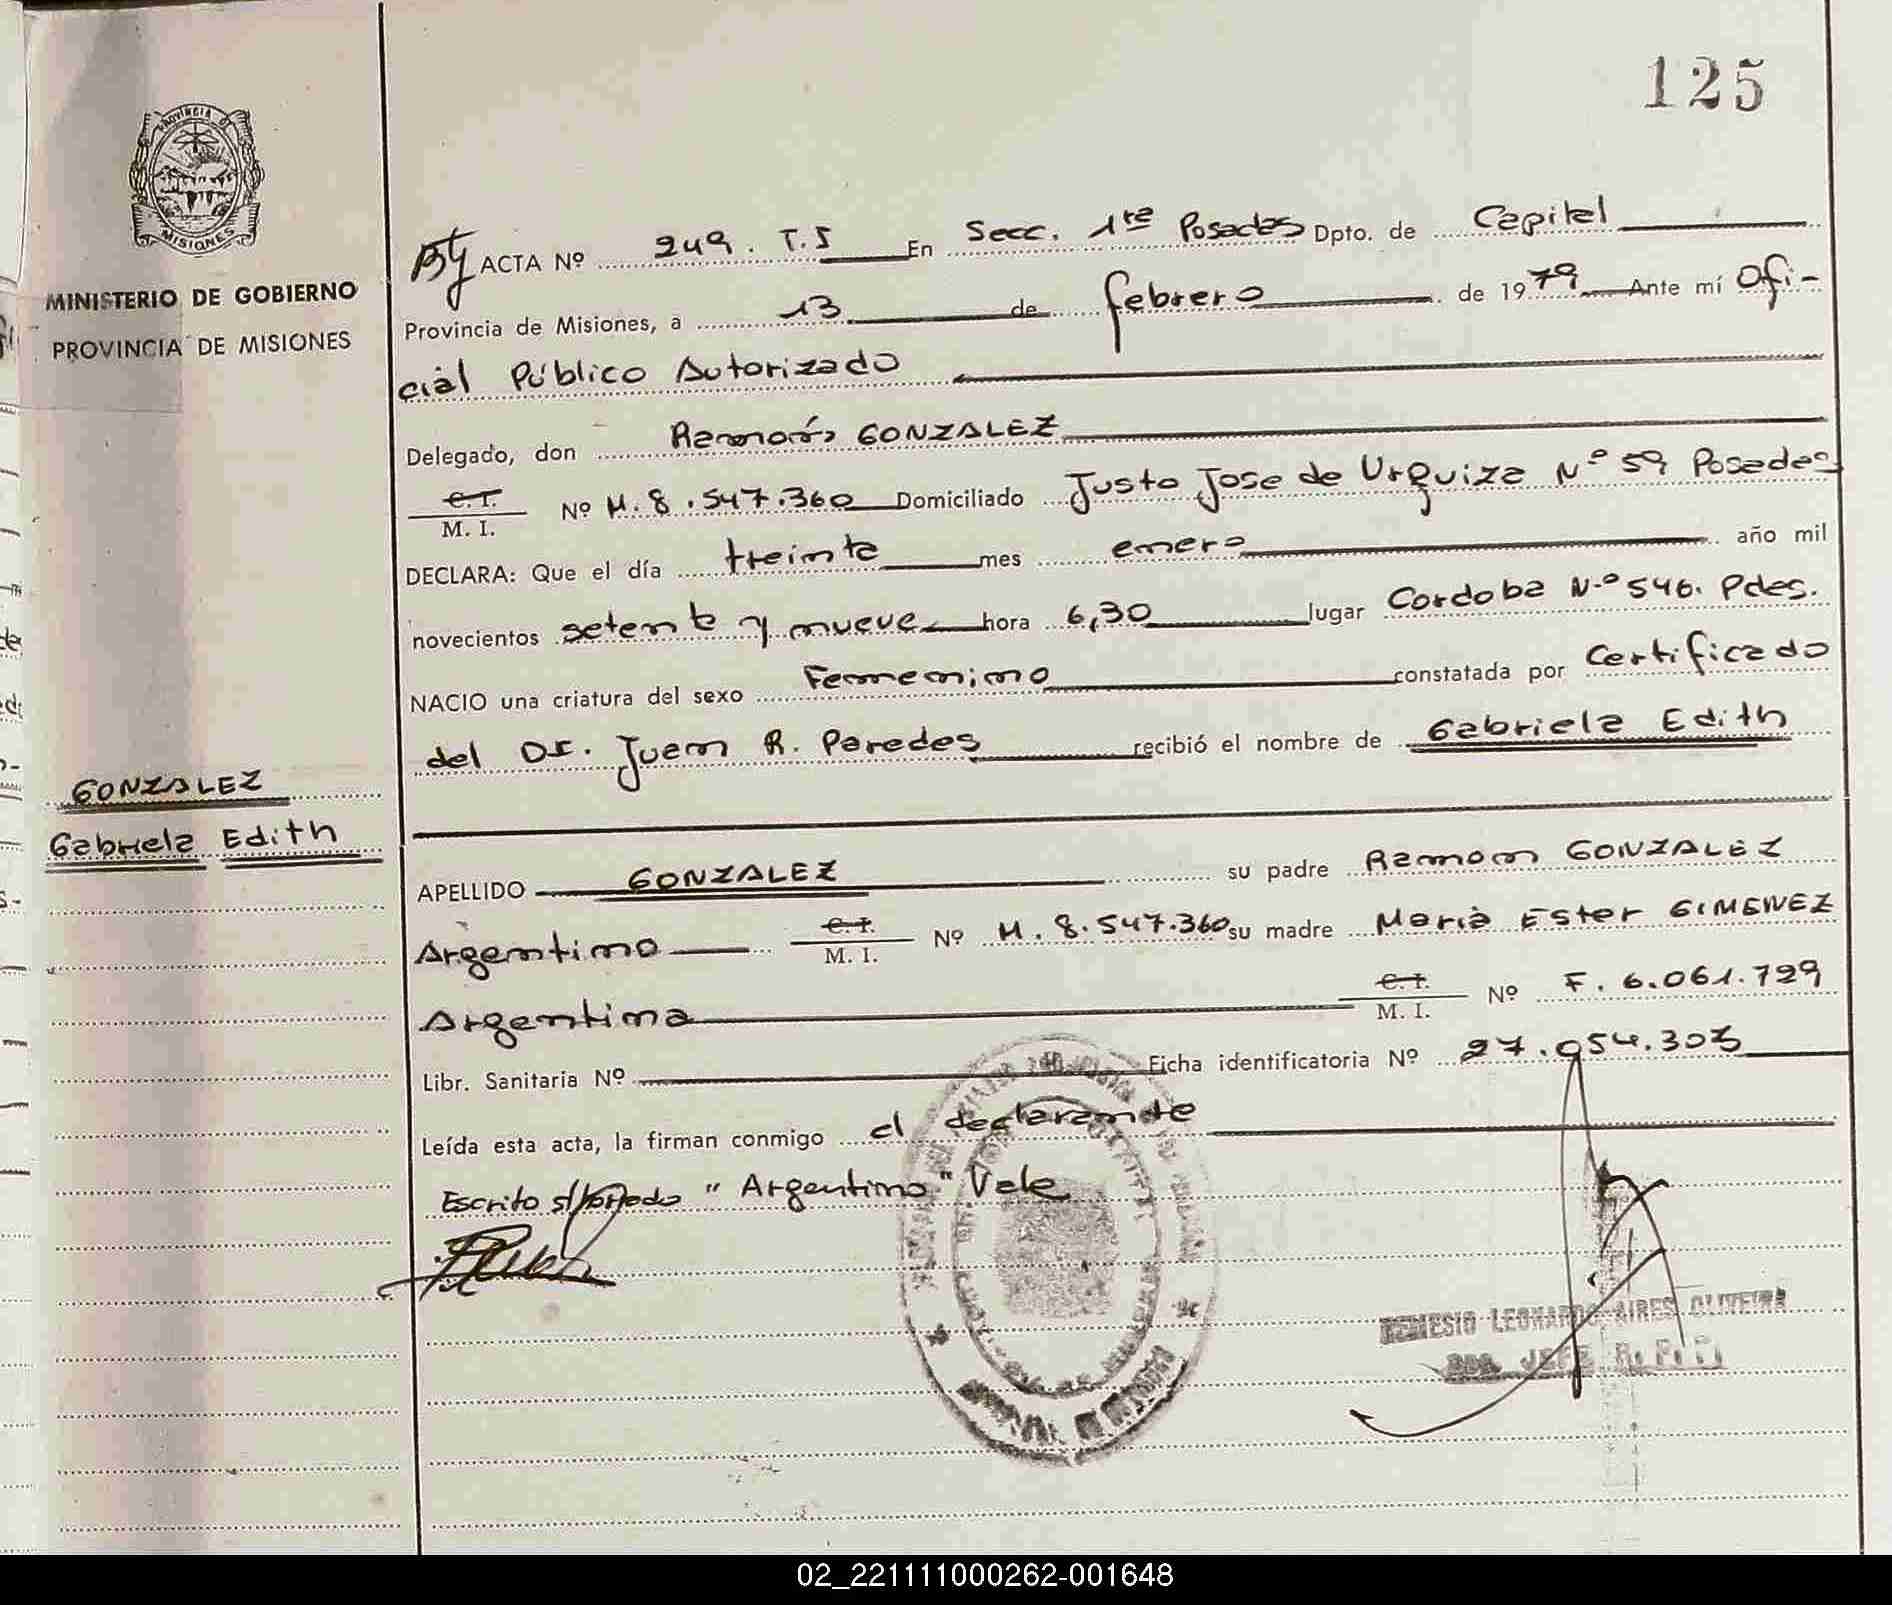 125
PROVINCIA DE
MISIONES
MINISTERIO DE GOBIERNO
PROVINCIA DE MISIONES
ACTA Nº 249. T.I En Secc. 1ra Posadas Dpto. de Capital
Provincia de Misiones, a 13 de febrero de 1979 Ante mí Ofi-
cial Público Autorizado
Delegado, don Ramón GONZALEZ
C.I.
M. I. Nº M. 8.547.360 Domiciliado Justo Jose de Urquiza Nº 59 Posadas
DECLARA: Que el día treinta mes enero año mil
novecientos setenta y nueve hora 6,30 lugar Cordoba Nº 546. Pdas.
NACIO una criatura del sexo Femenino constatada por Certificado
del Dr. Juan R. Paredes recibió el nombre de Gabriela Edith
GONZALEZ
Gabriela Edith
APELLIDO GONZALEZ su padre Ramon GONZALEZ
Argentino C.I.
M. I. Nº M. 8.547.360 su madre Maria Ester GIMENEZ
Argentina C.I.
M. I. Nº F. 6.061.729
Libr. Sanitaria Nº Ficha identificatoria Nº 27.954.303
Leída esta acta, la firman conmigo el declarante
Escrito s/borrado "Argentino" Vale
NEMESIO LEONARDO AIRES OLIVEIRA
JEFE R. P. P.
02_221111000262-001648